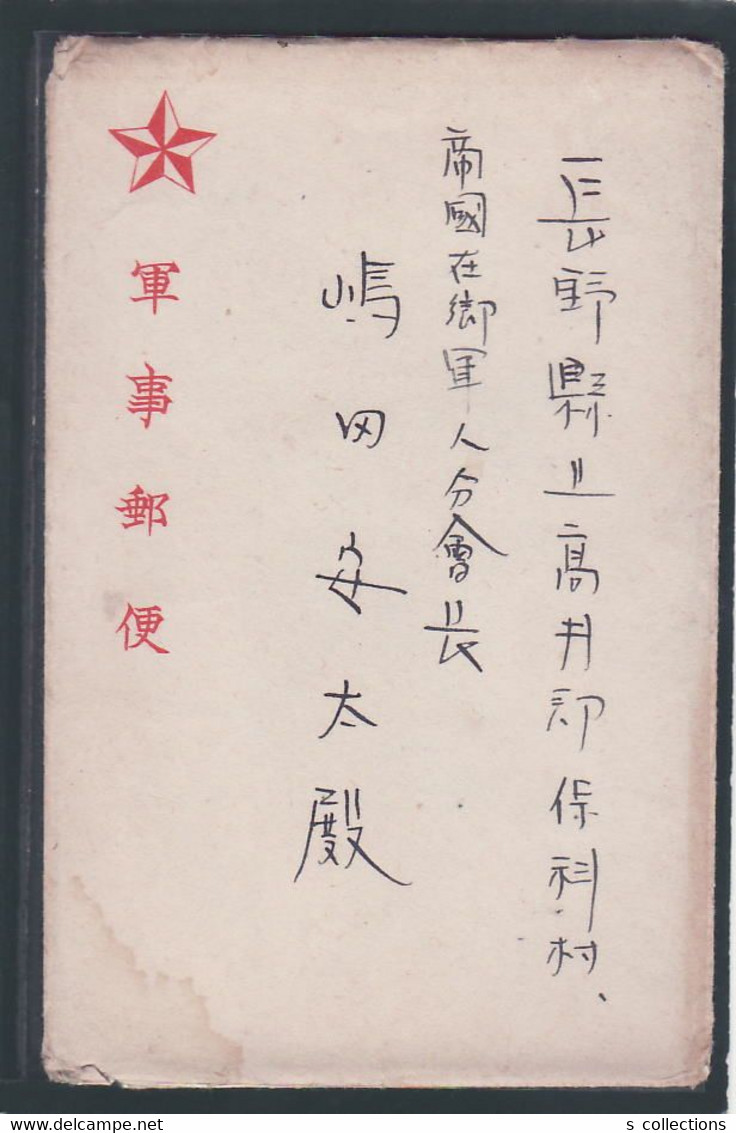 長野縣上高井郡保科村、
帝國在郷軍人分會長
嶋田安太殿
軍事郵便
s collections